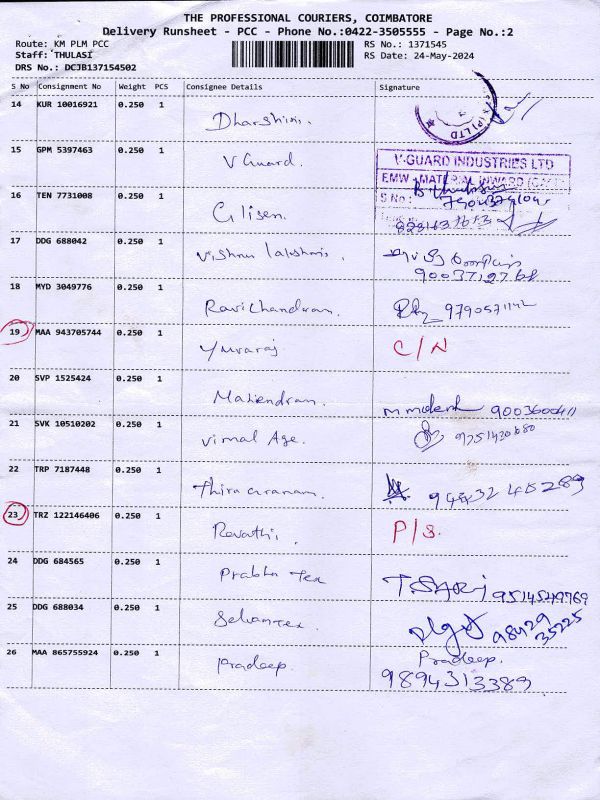 THE PROFESSIONAL COURIERS, COIMBATORE
Delivery Runsheet - PCC - Phone No.:0422-3505555 - Page No.:2
Route: KM PLM PCC RS No.: 1371545
Staff: THULASI RS Date: 24-May-2024
DRS No.: DCJB137154502
S No Consignment No Weight PCS Consignee Details Signature
14 KUR 10016921 0.250 1 Dharshini.
15 GPM 5397463 0.250 1 V Guard.
V-GUARD INDUSTRIES LTD
EMW - MATERIAL INWARD
S No:
16 TEN 7731008 0.250 1 Glisen.
17 DDG 688042 0.250 1 Vishnu lakshmi.
18 MYD 3049776 0.250 1 Ravichandran.
19 MAA 943705744 0.250 1 Yuvaraj C/N
20 SVP 1525424 0.250 1 Mahendran. 9003600411
21 SVK 10510202 0.250 1 Vimal Age.
22 TRP 7187448 0.250 1
23 TRZ 122146406 0.250 1 Revathi. P/S.
24 DDG 684565 0.250 1 Prabhu Tex T.SARI 9514549769
25 DDG 688034 0.250 1 Selvamtex. 98429
35225
26 MAA 865755924 0.250 1 Pradeep. Pradeep.
9894313389